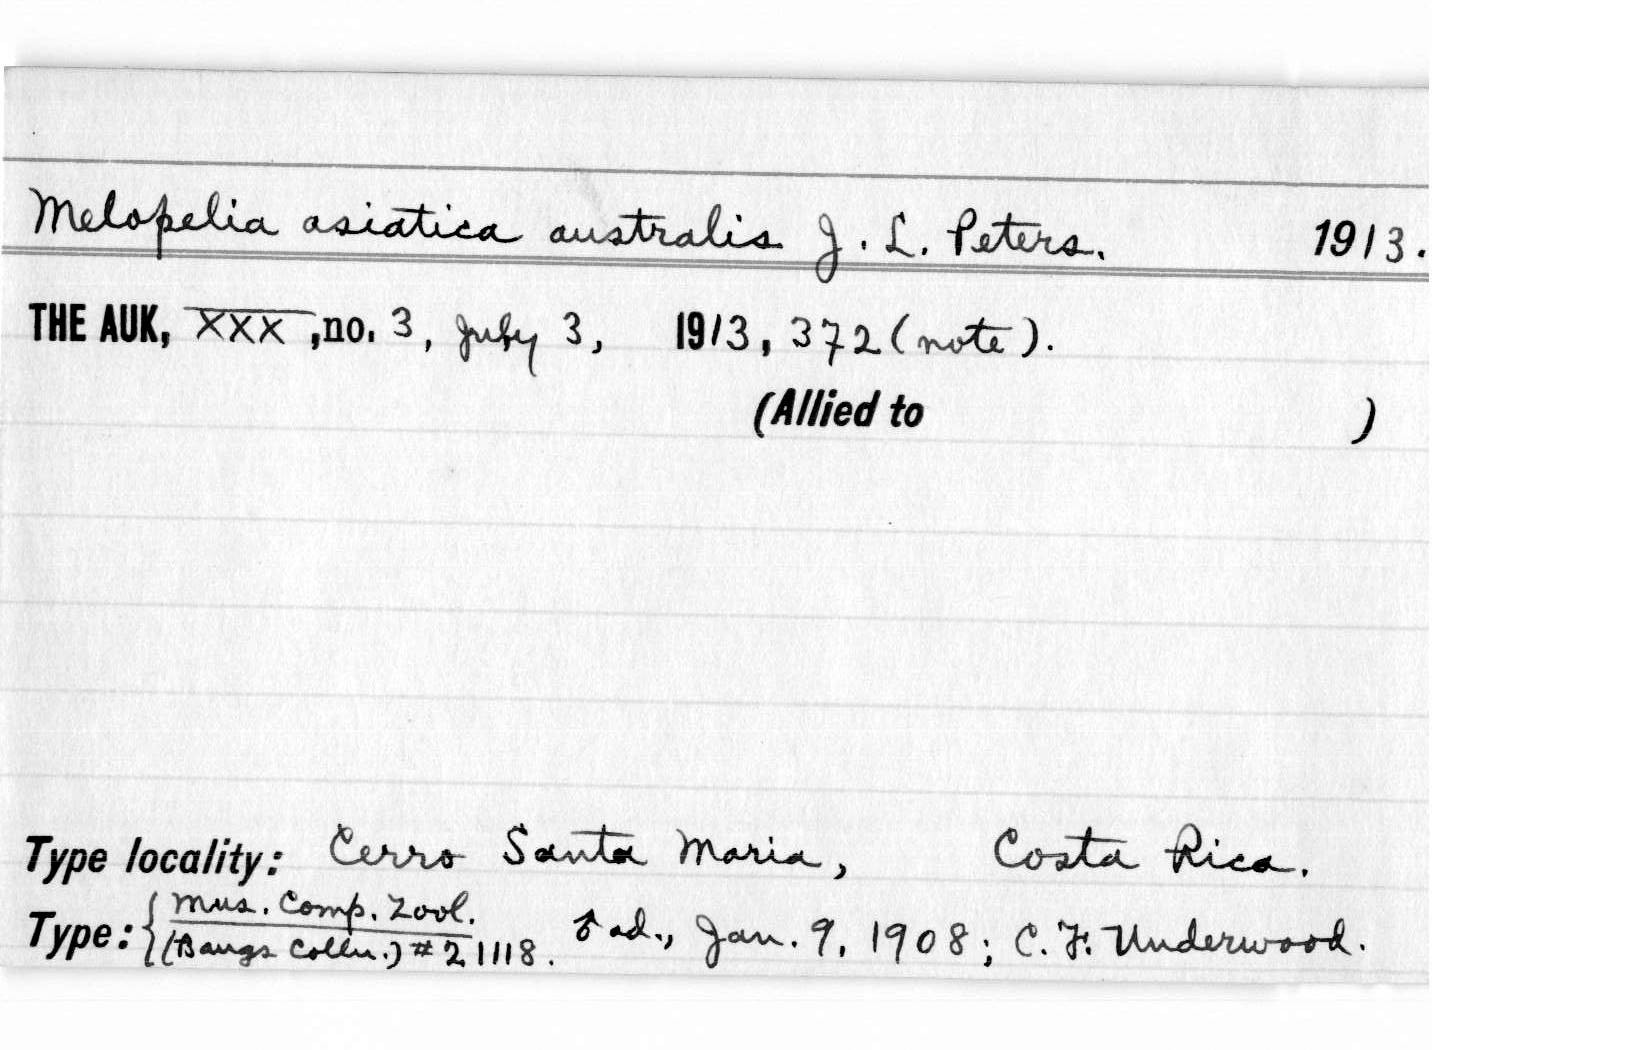 Melopelia asiatica australis J. L. Peters. 1913.
THE AUK, XXX, no. 3, July 3, 1913, 372 (note).
(Allied to )
Type locality: Cerro Santa Maria, Costa Rica.
Type: { Mus. Comp. Zool.
(Bangs Colln.) # 21118. ♂ ad., Jan. 9, 1908; C. F. Underwood.